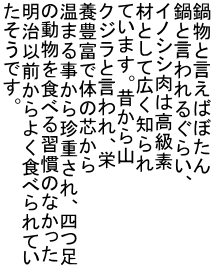 鍋物と言えばぼたん
鍋と言われるぐらい、
イノシシ肉は高級素
材として広く知られ
ています。昔から山
クジラと言われ、栄
養豊富で体の芯から
温まる事から珍重され、四つ足
の動物を食べる習慣のなかった
明治以前からよく食べられてい
たそうです。